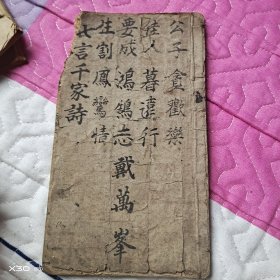 公子貪歡樂
佳人暮遠行
要成鴻鵠志
生割鳳鸞情
戴萬峯
七言千家詩